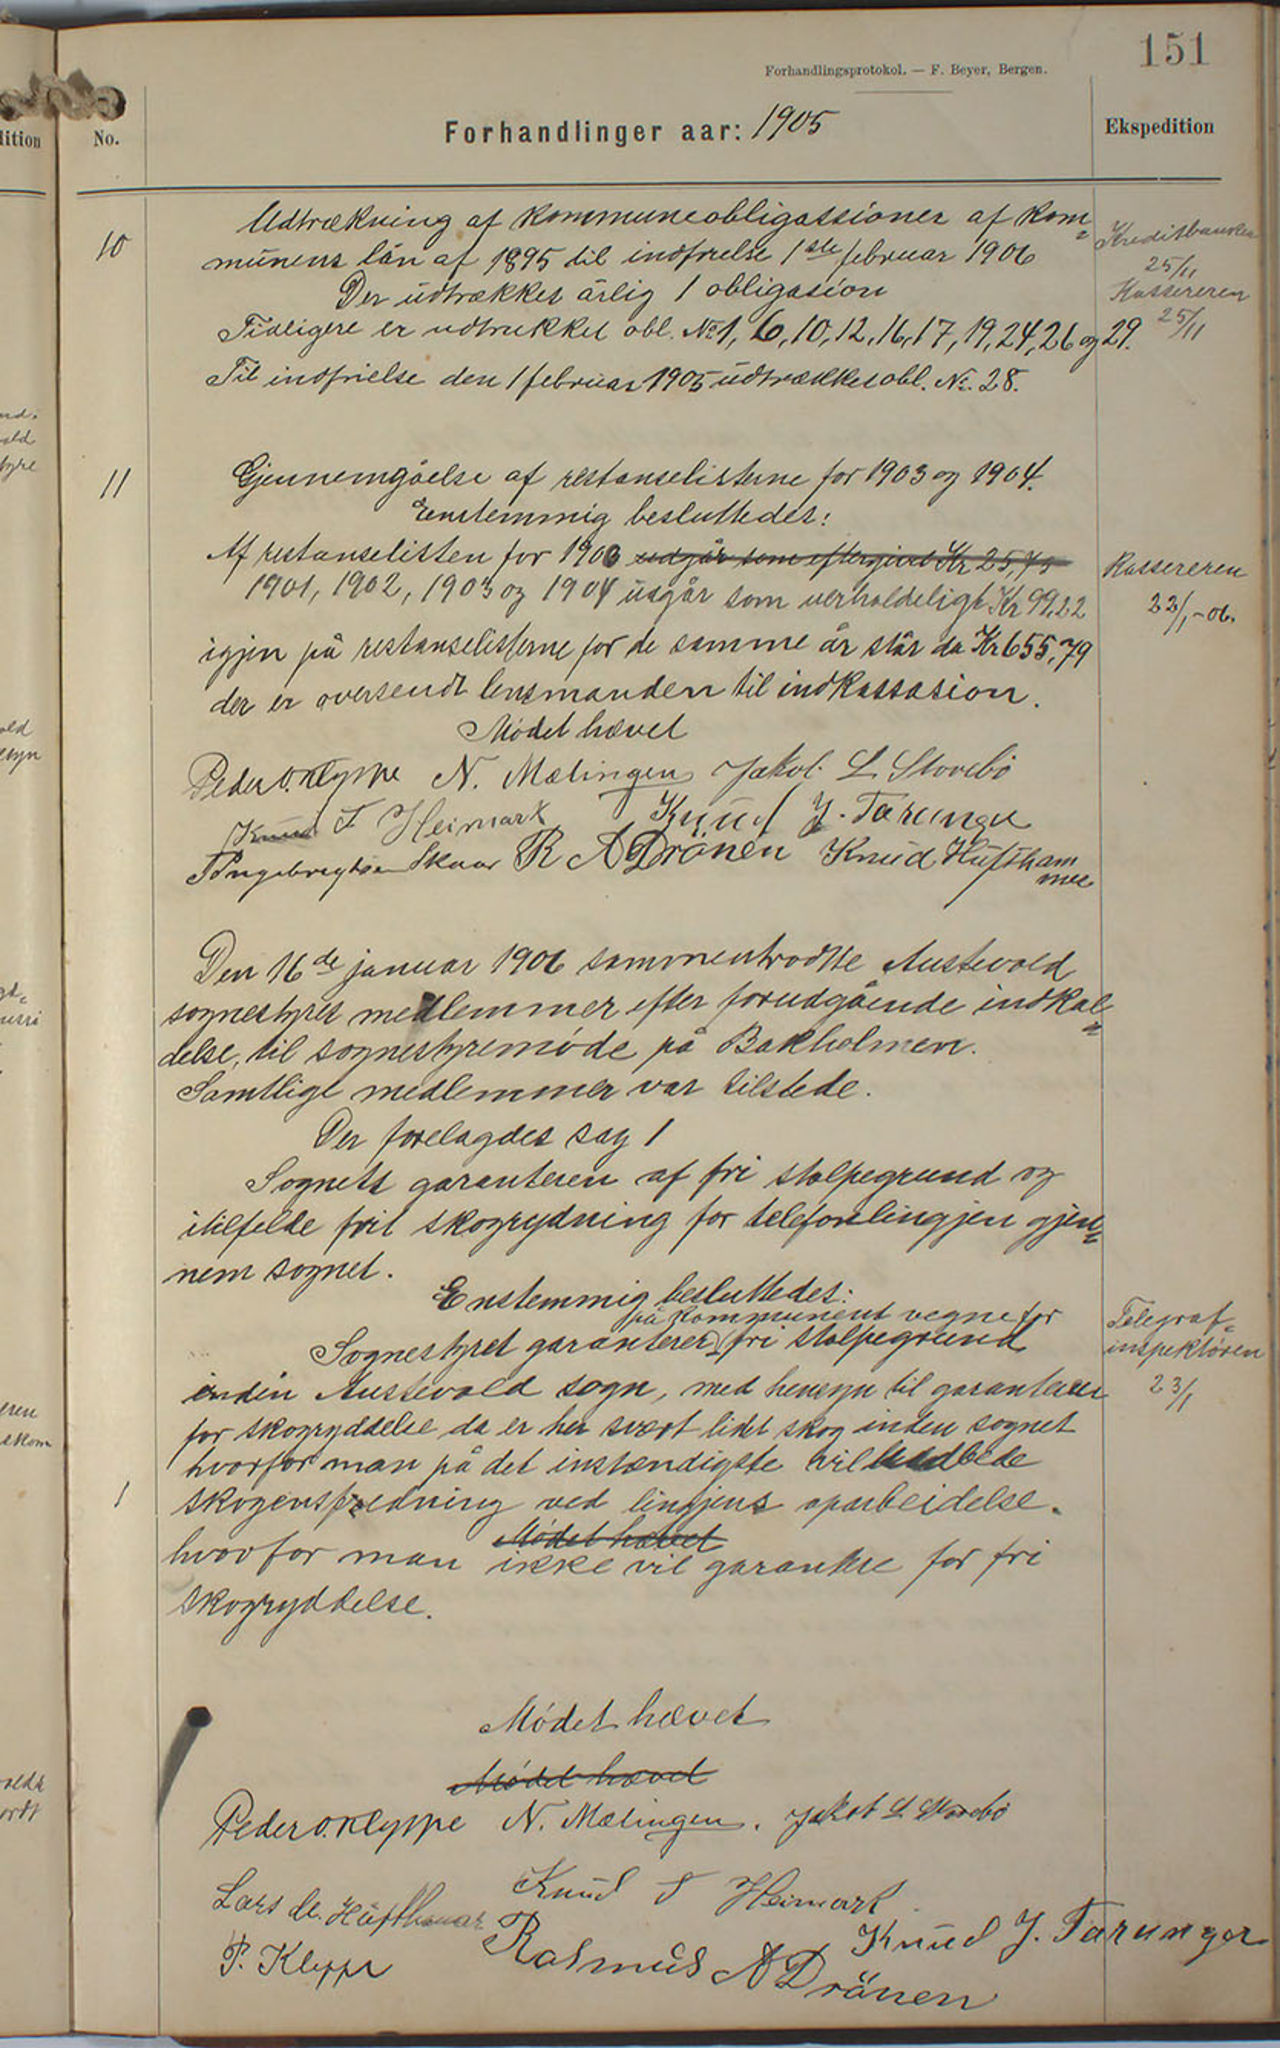 151
Forhandlingsprotokol. — F. Beyer, Bergen.
No.
Forhandlinger aar: 1905
Ekspedition
10
Udtrækning af kommuneobligassioner af kom=
munens lån af 1895 til indfrielse 1ste februar 1906
Der udtrækkes årlig 1 obligasion
Tidligere er udtrukket obl. No 1, 6, 10, 12, 16, 17, 19, 24, 26 og 29.
Til indfrielse den 1 februar 1905 udtrækkes obl. No. 28.
Kreditbanken
25/11
Kassereren
25/11
11
Gjennemgåelse af restanselisterne for 1903 og 1904.
Enstemmig besluttedes:
Af restanselisten for 1900 udgår som eftergivet Kr 25,75
1901, 1902, 1903 og 1904 udgår som uerholdeligt Kr 99,22
igjen på restanselisterne for de samme år står da Kr 655,79
der er oversendt lensmanden til indkassasion.
Kassereren
22/1-06.
Mødet hævet
Peder O. Kleppe N. Mælingen Jakob L Storebø
Knud T Heimark Knud J. Tarunger
Ingebrigtsen Skaar R A Drönen Knud Huftham
mer
Den 16de januar 1906 sammentrådte Austevold
sognestyres medlemmer efter forudgående indkal=
delse, til sognestyremøde på Bakholmen.
Samtlige medlemmer var tilstede.
Der forelagdes sag 1
Sognets garanteren af fri stolpegrund og
itilfelde frit skogrydning for telefonlingjen gjen=
nem sognet.
Enstemmig besluttedes:
på kommunens vegne for
Sognestyret garanterer fri stolpegrund
inden Austevold sogn, med hensyn til garanterer
for skogryddelse da er her svært lidet skog inden sognet
hvorfor man på det instændigste vil
skogensfredning ved linjens oparbeidelse.
Mødet hævet
hvorfor man ikke vil garantere for fri
skogryddelse.
Telegraf=
inspektøren
23/1
1
Mødet hævet
Mødet hævet
Peder O. Kleppe N. Mælingen. Jakob L Storebø
Knud T Heimark
Lars Hufthamar
Knud J. Tarunger
P. Kleppe
Rasmus A Drönen